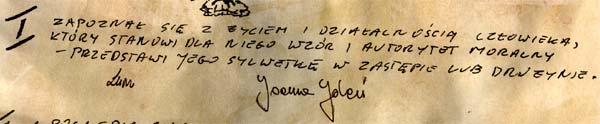 I ZAPOZNAŁ SIĘ Z ŻYCIEM I DZIAŁALNOŚCIĄ CZŁOWIEKA,
KTÓRY STANOWI DLA NIEGO WZÓR I AUTORYTET MORALNY
– PRZEDSTAWI JEGO SYLWETKĘ W ZASTĘPIE LUB DRUŻYNIE.
Joanna